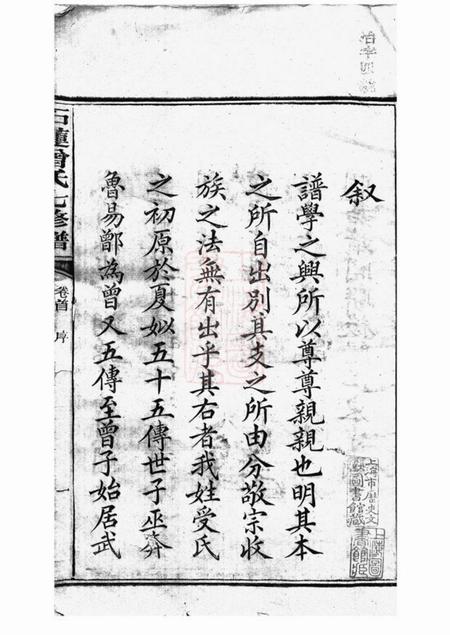 叙
譜學之興所以尊尊親親也明其本
之所自出別其支之所由分敬宗收
族之法無有出乎其右者我姓受氏
之初原於夏姒五十五傳世子巫奔
魯易鄫為曾又五傳至曾子始居武
石蓮曾氏七修譜
卷首
序
一
上海市歷史文
獻圖書館藏